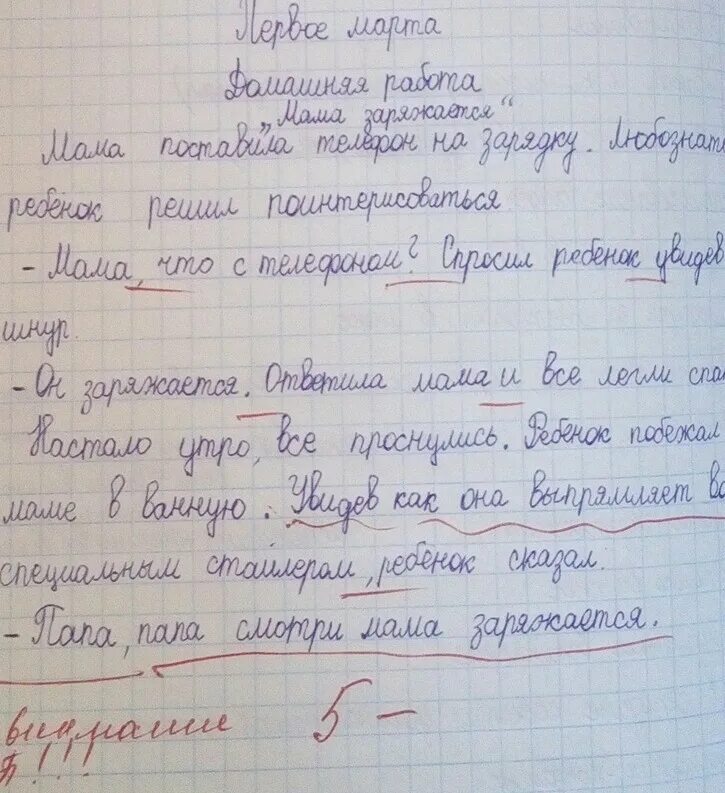 Первое марта
Домашняя работа
„Мама заряжается“
Мама поставила телефон на зарядку. Любознат
ребенок решил поинтерисоваться
- Мама, что с телефоном? Спросил ребенок увидев
шнур.
- Он заряжается. Ответила мама и все легли спа
Настало утро, все проснулись. Ребенок побежал
маме в ванную. Увидев как она выпрямляет во
специальным стайлером, ребенок сказал.
- Папа, папа смотри мама заряжается.
внимание 5 -
!!!